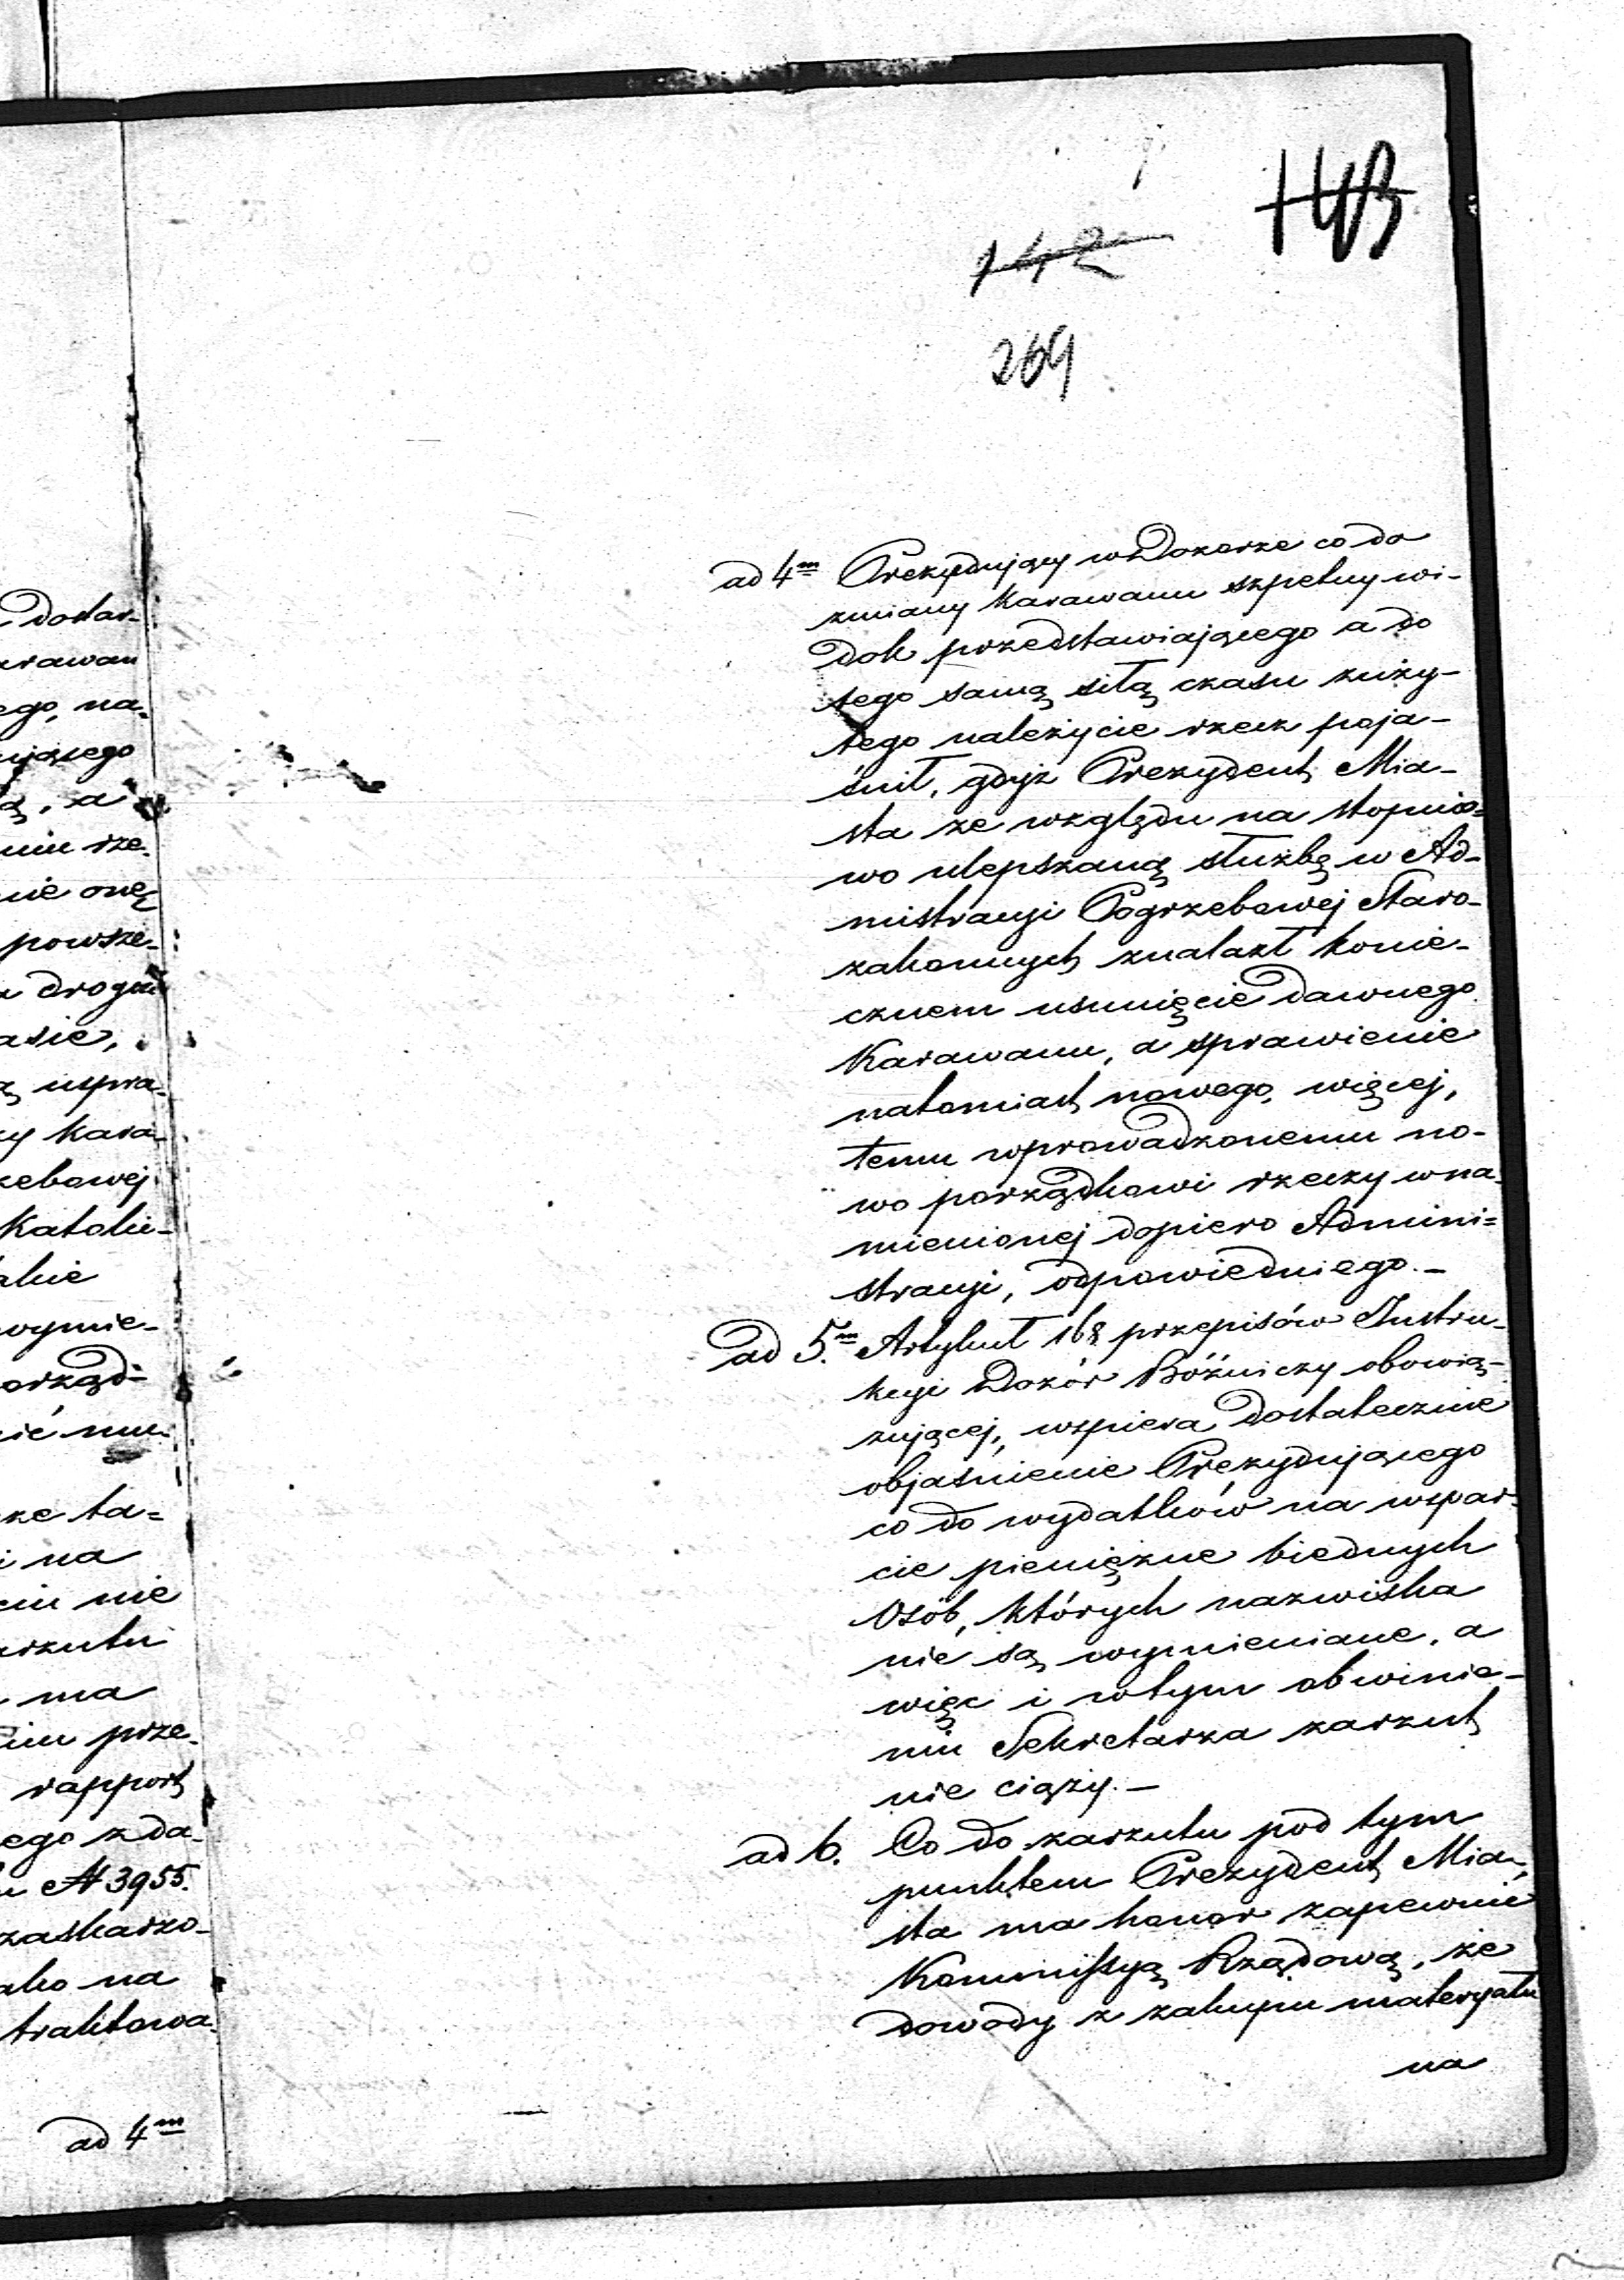 143
142
269
ad 4m Prezydujący w Dozorze co do
zmiany Karawanu szpetny wi-
dok przedstawiającego a do
tego samą siłą czasu zuży-
tego należycie rzecz poja-
śnił, gdyż Prezydent Mia-
sta ze względu na stopnio=
wo ulepszaną służbę w Ad-
mistracyi Pogrzebowej Staro-
zakonnych znalazł konie-
cznem usunięcie dawnego
Karawanu, a sprawienie
natomiast nowego, więcej,
temu wprowadzonemu no-
wo porządkowi rzeczy wna-
mienionej dopiero Admini=
stracyi, odpowiedniego.-
ad 5.m Artykuł 168 przepisów Instru-
kcyi Dozór Bóżniczy obowią-
zującej, wspiera dostatecznie
objaśnienie Prezydującego
co do wydatków na wspar-
cie pieniężne biednych
Osób, których nazwiska
nie są wymieniane, a
więc i wtym obwinie-
niu Sekretarza zarzut
nie ciąży.-
ad 6. Co do zarzutu pod tym
punktem Prezydent Mia-
sta ma honor zapewnić
Kommissyą Rządową, że
dowody z zakupu materyału
na
dostar-
arawan
ego, na-
ującego
ą, a
niu rze-
nie onę
powsze-
drogim
asie,
ą uspra-
y kara-
zebowej
Katolic-
alnie
wymie-
orząd-
ić mu-
że ta=
i na
ciu nie
arzutu
ma
im prze-
rapport
ego z da-
u N 3955.
zaskarżo-
ako na
traktowa-
ad 4m